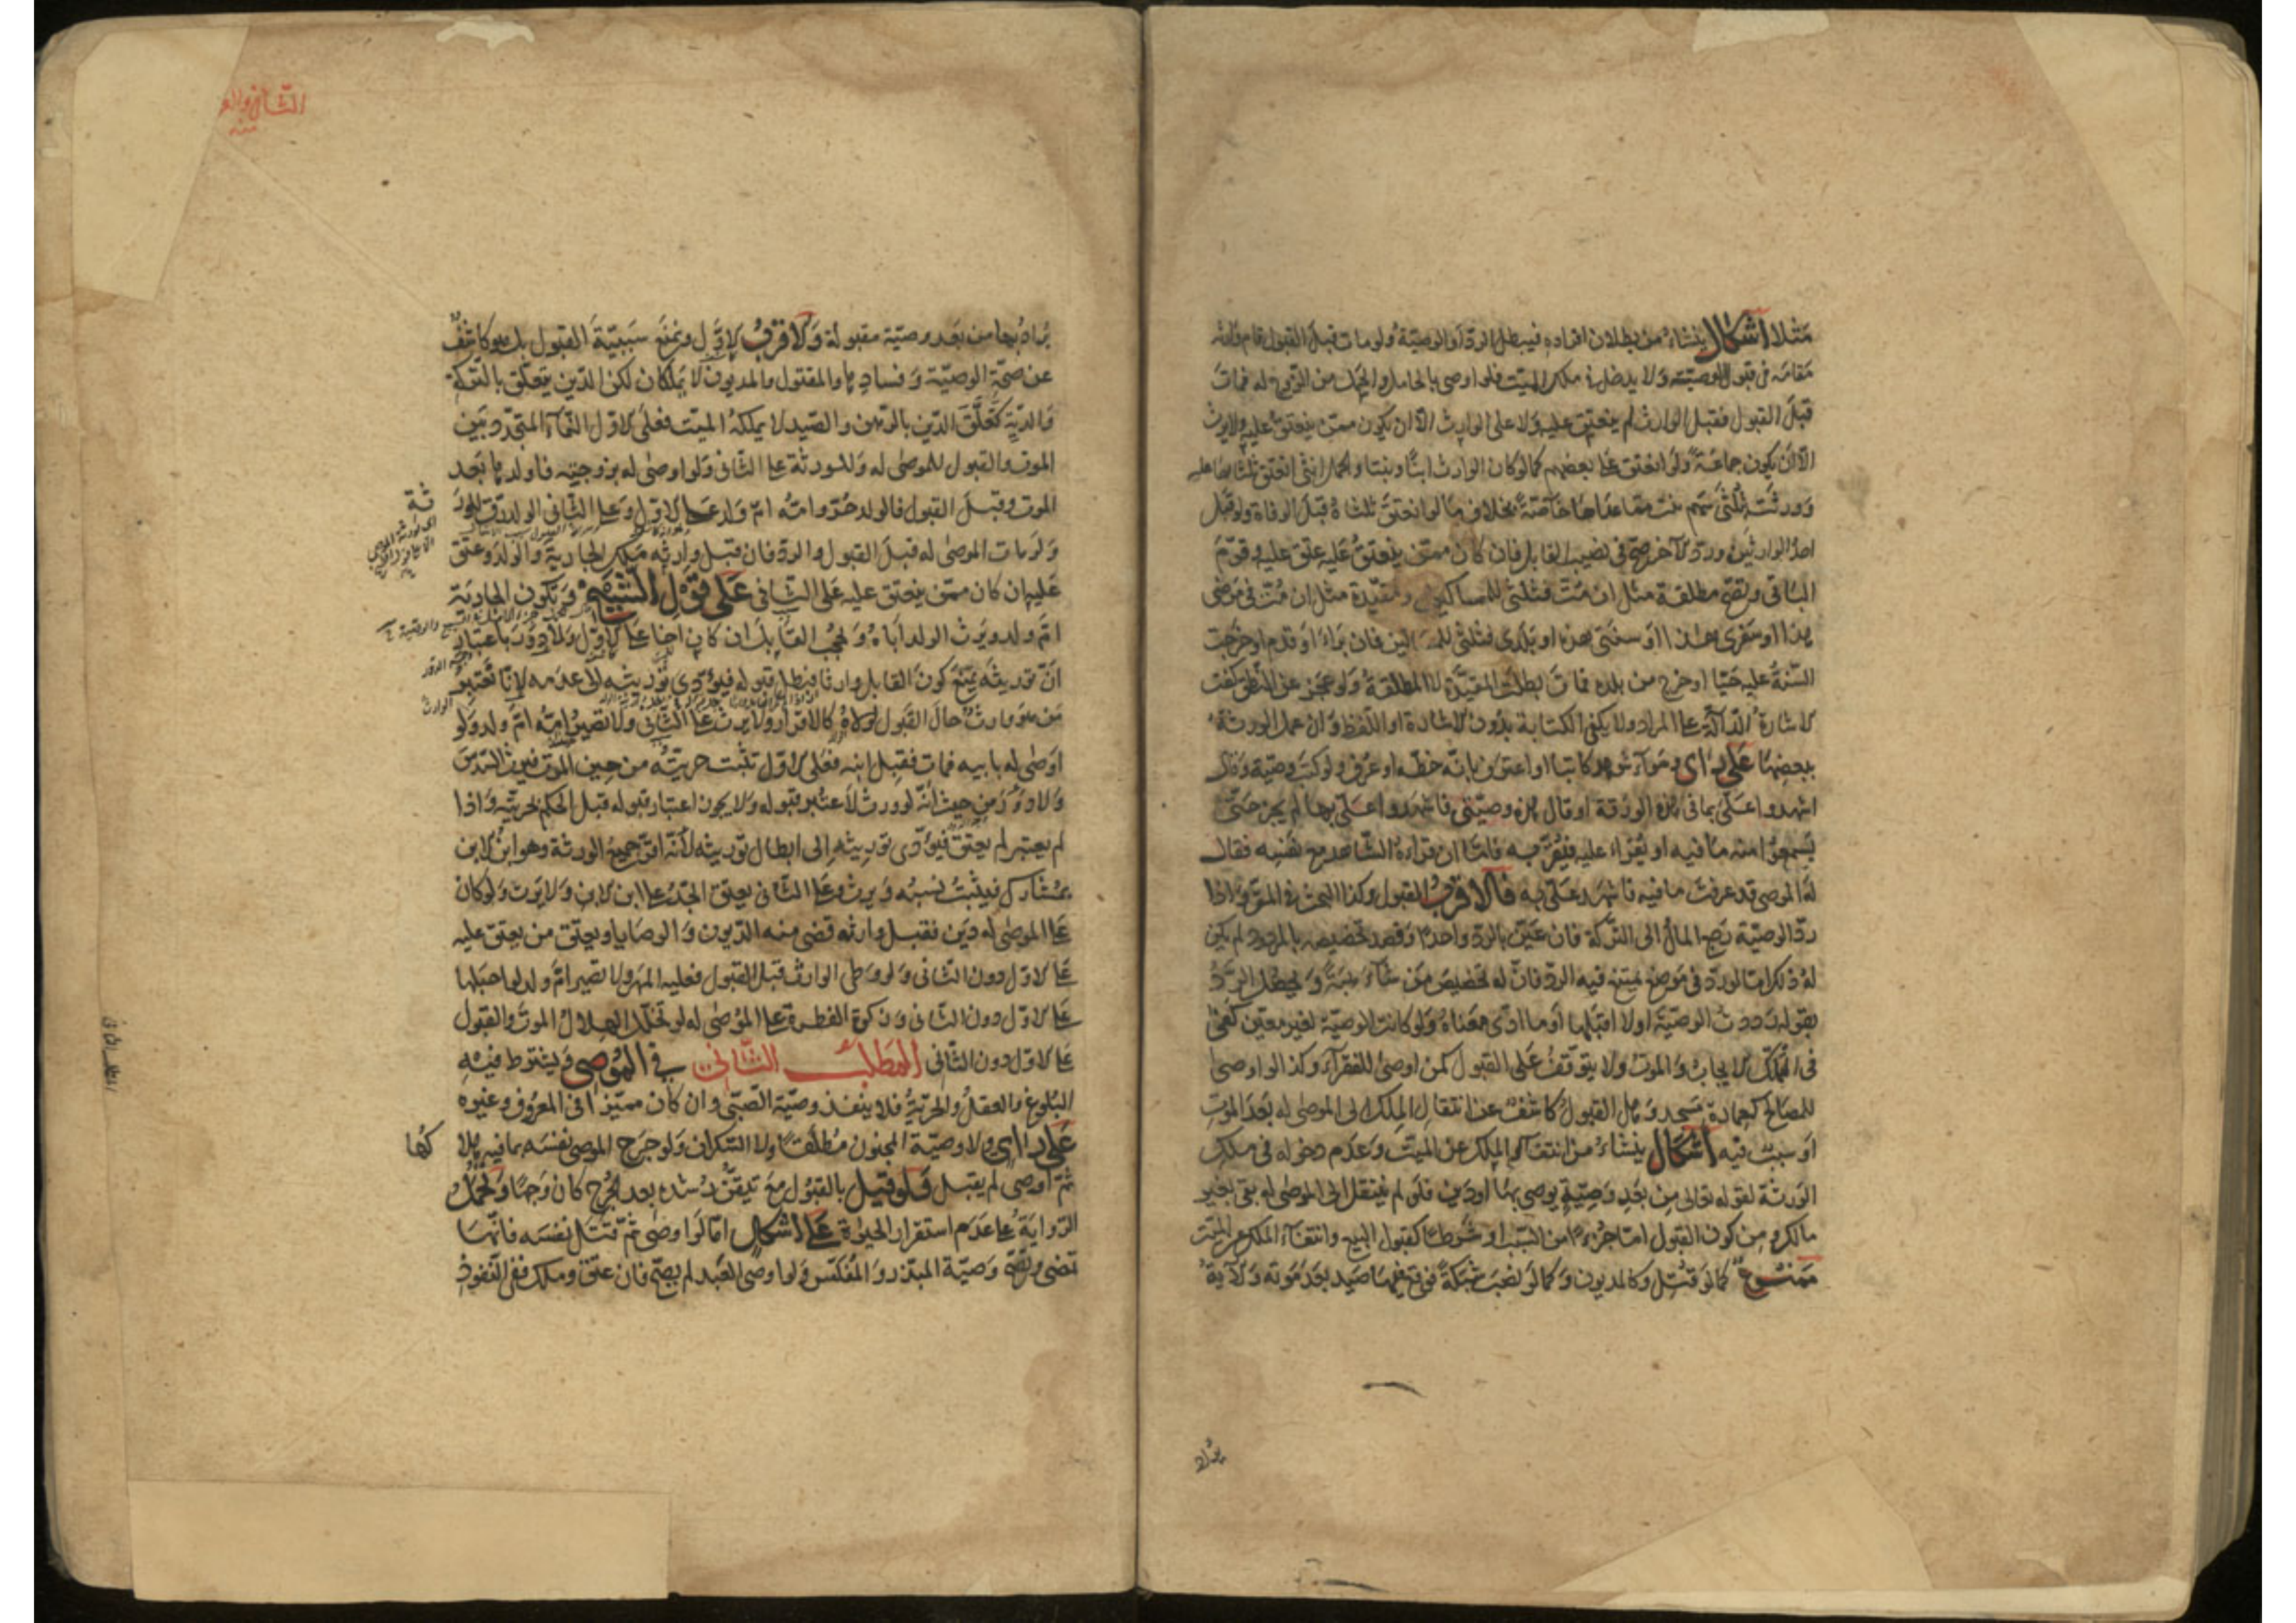 مثلا اشكال ينشاء من بطلان افراده فيبطل الردّ او الوصيّة ولو مات قبل القبول قام وارثه
مقامه في قبول الوصيّة ولا يدخل في ملك الميّت فلو اوصى بالحامل والحمل من الزوج له فمات
قبل القبول فقبل الوارث لم ينعتق عليه ولا على الوارث الّا ان يكون ممّن ينعتق عليه ولا يرث
الّا ان يكون جماعة ولو انعتق على بعضهم كما لو كان الوارث ابنًا وبنتا والحمل انثى انعتق ثلثاها عليه
وورثت ثلثى سهم بنت ممّا عداها خاصّة بخلاف ما لو انعتق ثلثاه قبل الوفاة ولو قبل
احد الوارثين وردّ الآخر صحّ في نصيب القابل فان كان ممّن ينعتق عليه عتق عليه وقوّم
الباقي وتصحّ مطلقة مثل ان متّ فثلثي للمساكين ومقيّدة مثل ان متّ في مرضى
هذا او سفرى هذا او سنتى هذه او بلدى فثلثي للمساكين فان براء او قدم او خرجت
السّنة عليه حيّا او خرج من بلده فمات بطلت المقيّدة لا المطلقة ولو عجز عن النّطق كفت
الاشارة الدّالّة على المراد ولا يكفى الكتابة بدون الاشارة او اللّفظ وان عمل الورثة
ببعضها على راى وسواء شوهد كاتبا او اعترف بانّه خطّه او عرف ولو كتب وصيّة وقال
اشهدوا علىّ بما في هذه الورقة او قال هذه وصيّتى فاشهدوا علىّ بها لم يجز حتّى
يسمعوا منه ما فيه او يقراء عليه فيقرّ به فامّا ان قراءه الشّاهد مع نفسه فقال
له الموصى قد عرفت ما فيه فاشهد علىّ به فالاقرب القبول وكذا البحث في المقرّ واذا
ردّ الوصيّة رجع المال الى التّركة فان عيّن بالردّ واحدًا وقصد تخصيصه بالمردود لم يكن
له ذلك امّا لو ردّ في موضع يمتنع فيه الردّ فانّ له تخصيص من شاء هبة ويحصل الردّ
بقوله رددت الوصيّة او لا اقبلها او ما ادّى معناه ولو كانت الوصيّة لغير معيّن كفى
فى التملّك الايجاب والموت ولا يتوقّف على القبول كمن اوصى للفقراء وكذا لو اوصى
للمصالح كعمارة مسجد وهل القبول كاشف عن انتقال الملك الى الموصى له بعد الموت
او سبب فيه اشكال ينشاء من انتفاء الملك عن الميّت وعدم دخوله في ملك
الورثة لقوله تعالى من بعد وصيّة يوصى بها او دين فلو لم ينتقل الى الموصى له بقى بغير
مالك ومن كون القبول امّا جزءًا من السّبب او شرطًا كقبول البيع وانتفاء الملك عن الميّت
ممنوع كما لو قتل وكالمديون وكما لو نصب شبكة فوقع فيها صيد بعد موته والآية
يراد
يراد بها من بعد وصيّة مقبولة والاقرب الاوّل ونمنع سببيّة القبول بل هو كاشف
عن صحّة الوصيّة وفسادها والمقتول والمديون لا يملكان لكن الدّين يتعلّق بالتركة
والديّة كتعلّق الدّين بالرّهن والصّيد لا يملكه الميّت فعلى الاوّل النّماء المتجدّد بين
الموت والقبول للموصى له وللورثة على الثّاني ولو اوصى له بزوجته فاولدها بعد
الموت وقبل القبول فالولد حرّ وامّه امّ ولد على الاوّل وعلى الثّاني الولد رقّ للور
ثة
ولو مات الموصى له قبل القبول والردّ فان قبل وارثه ملك الجارية والولد وعتق
عليه ان كان ممّن ينعتق عليه على الثّاني على قول الشّيخ وتكون الجارية
امّ ولد ويرث الولد اباه ويحجب القابل ان كان اخا على الاوّل ولا دور باعتبار
انّ توريثه يمنع كون القابل وارثا فيبطل قبوله فيؤدّى توريثه لى عدمه لانّا نعتبر
من هو وارث حال القبول لولاه كالاقرار ولا يرث على الثّاني ولا تصير امّه امّ ولد ولو
اوصى له بابيه فمات فقبل ابنه فعلى الاوّل تثبت حريّته من حين الموت فيرث السّدس
ولا دور من حيث انّه لو ورث لاعتبر قبوله ولا يجوز اعتبار قبوله قبل الحكم بحريّته واذا
لم يعتبر لم يعتق فيؤدّى توريثه الى ابطال توريثه لانّه اقرّ جميع الورثة وهو ابن الابن
بمشارك فيثبت نسبه ويرث وعلى الثّاني يعتق الجدّ على ابن الابن ولا يرث ولو كان
على الموصى له دين فقبل وارثه قضى منه الدّيون والوصايا ويعتق من يعتق عليه
على الاوّل دون الثّاني ولو وطى الوارث قبل القبول فعليه المهر ولا تصير امّ ولد لو احبلها
على الاوّل دون الثّاني وزكوة الفطرة على الموصى له لو تخلّل الهلال الموت والقبول
على الاوّل دون الثّاني المطلب الثّاني في الموصى ويشترط فيه
البلوغ والعقل والحريّة فلا ينفذ وصيّة الصّبىّ وان كان مميّزا في المعروف وغيره
على راى ولا وصيّة المجنون مطلقًا ولا السّكران ولو جرح الموصى نفسه بما فيه هلا
كها
ثمّ اوصى لم يقبل فلو قيل بالقبول مع تيقّن رشده بعد الجرح كان وجها وتحمل
الرّواية على عدم استقرار الحيوة على اشكال امّا لو اوصى ثمّ قتل نفسه فانّها
تمضى وتصحّ وصيّة المبذّر والمفلّس ولو اوصى العبد لم يصحّ فان عتق وملك ففى النّفوذ